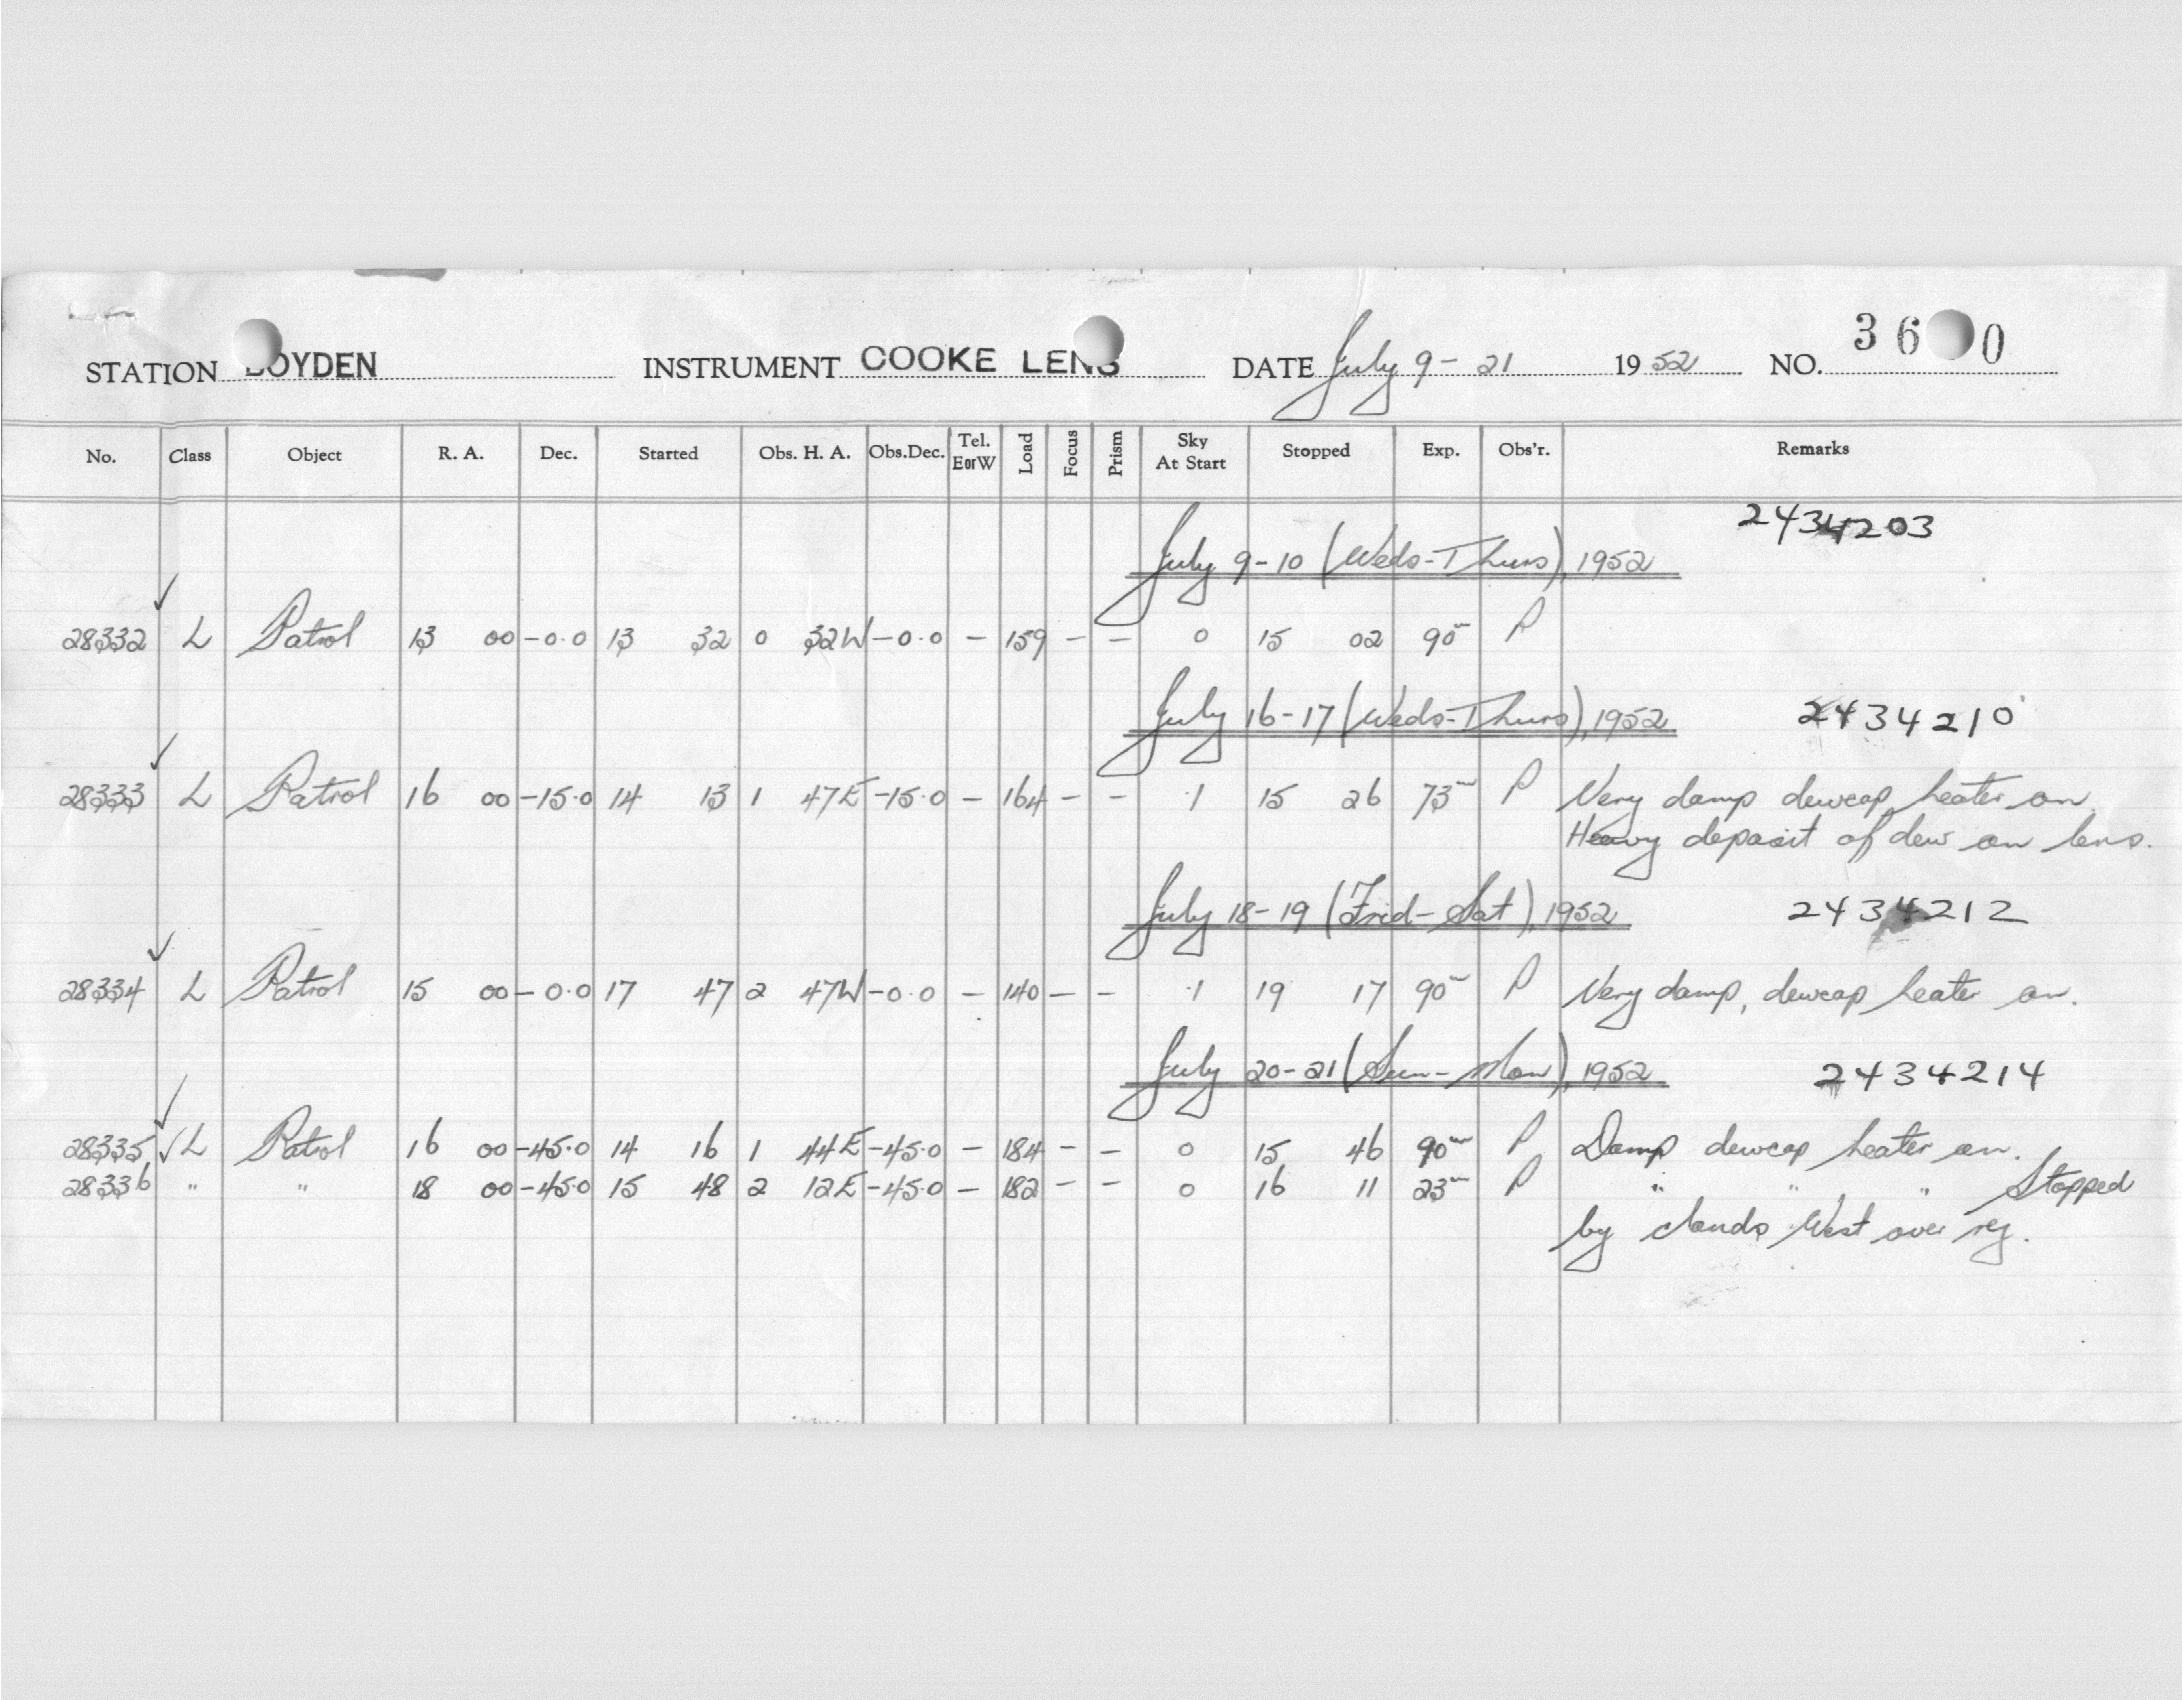 STATION BOYDEN INSTRUMENT COOKE LENS DATE July 9 - 21 1952 NO. 36 0
No. Class Object R. A. Dec. Started Obs. H. A. Obs.Dec. Tel. EorW Load Focus Prism Sky At Start Stopped Exp. Obs'r. Remarks
2434203
July 9-10 (Weds-Thurs), 1952
✓
28332 L Patrol 13 00 -0.0 13 32 0 32W -0.0 - 159 - - 0 15 02 90m P
July 16-17 (Weds-Thurs), 1952 2434210
✓
28333 L Patrol 16 00 -15.0 14 13 1 47E -15.0 - 164 - - .1 15 26 73m P Very damp dewcap heater on.
Heavy deposit of dew on lens.
July 18-19 (Frid-Sat), 1952 2434212
✓
28334 L Patrol 15 00 -0.0 17 47 2 47W -0.0 - 140 - - .1 19 17 90m P Very damp, dewcap heater on.
July 20-21 (Sun-Mon), 1952 2434214
✓
28335 ✓ L Patrol 16 00 -45.0 14 16 1 44E -45.0 - 184 - - 0 15 46 90m P Damp dewcap heater on.
28336 " " 18 00 -45.0 15 48 2 12E -45.0 - 182 - - 0 16 11 23m P " " " Stopped
by clouds West over reg.